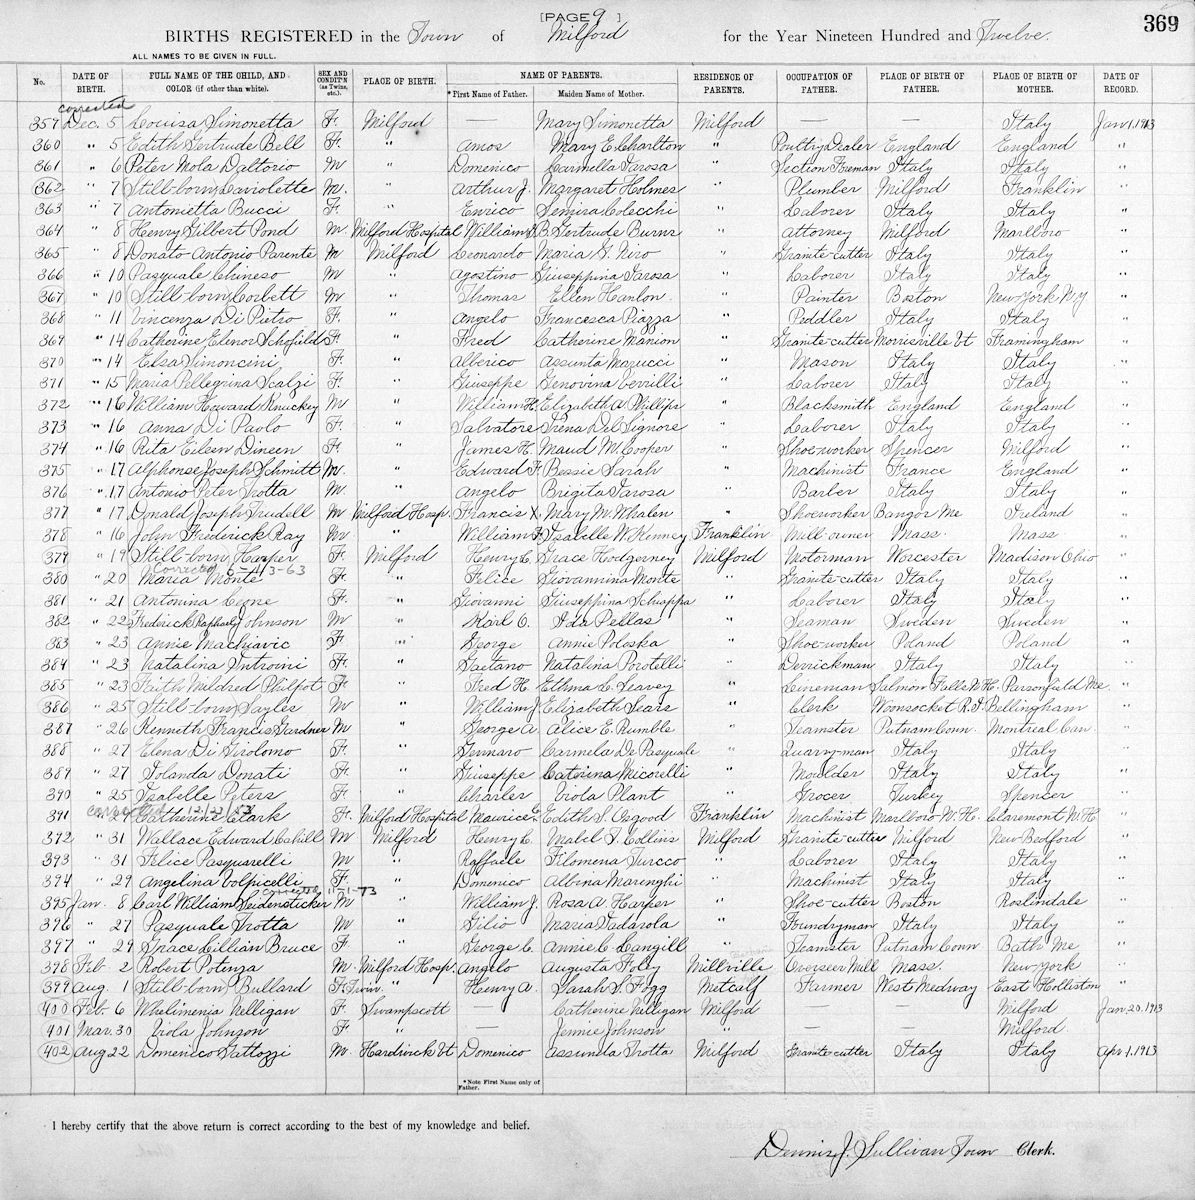 [PAGE 9 ]
369
BIRTHS REGISTERED in the Town of Milford for the Year Nineteen Hundred and Twelve.
ALL NAMES TO BE GIVEN IN FULL.
No. DATE OF BIRTH. FULL NAME OF THE CHILD, AND COLOR (if other than white). SEX AND CONDIT'N (as Twins, etc.) PLACE OF BIRTH. NAME OF PARENTS. *First Name of Father. Maiden Name of Mother. RESIDENCE OF PARENTS. OCCUPATION OF FATHER. PLACE OF BIRTH OF FATHER. PLACE OF BIRTH OF MOTHER. DATE OF RECORD.
corrected
359 Dec. 5 Louisa Simonetta F. Milford — Mary Simonetta Milford — — Italy Jan 1, 1913
360 " 5 Edith Gertrude Bell F. " Amos Mary E. Charlton " Poultry Dealer England England "
361 " 6 Peter Mola Daltorio M " Domenico Carmella Iarosa " Section Foreman Italy Italy "
362 " 7 Still-born Laviolette M. " Arthur J. Margaret Holmes " Plumber Milford Franklin "
363 " 7 Antonietta Bucci F. " Enrico Semira Colecchi " Laborer Italy Italy "
364 " 8 Henry Gilbert Pond M. Milford Hospital William B. Gertrude Burns " Attorney Milford Marlboro "
365 8 Donato Antonio Parente M Milford Leonardo Maria G. Niro " Granite-cutter Italy Italy "
366 " 10 Pasquale Chineso M " Agostino Giuseppina Iarosa " Laborer Italy Italy "
367 " 10 Still-born Corbett M " Thomas Ellen Hanlon " Painter Boston New York N.Y "
368 " 11 Vincenza Di Pietro F. " Angelo Francesca Piazza " Peddler Italy Italy "
369 " 14 Catherine Elinor Schofield F. " Fred Catherine Manion " Granite-cutter Morrisville Vt Framingham "
370 " 14 Elsa Simoncini F. " Alberico Assunta Marucci " Mason Italy Italy "
371 " 15 Maria Pellegrina Scalzi F. " Giuseppe Genovina Cevilli " Laborer Italy Italy "
372 " 16 William Howard Knuckey M " William H. Elizabeth A. Phillips " Blacksmith England England "
373 " 16 Anna Di Paolo F. " Salvatore Irena Del Signore " Laborer Italy Italy "
374 " 16 Rita Eileen Dineen F. " James H. Maud M. Cooper " Shoe-worker Spencer Milford "
375 " 17 Alphonse Joseph Schmitt M. " Edward F. Bessie Sarah " Machinist France England "
376 " 17 Antonio Peter Trotta M. " Angelo Brigita Iarosa " Barber Italy Italy "
377 " 17 Donald Joseph Trudell M Milford Hosp. Francis X. Mary M. Whalen " Shoeworker Bangor Me Ireland "
378 " 16 John Frederick Ray M " William F. Isabelle W. Kenney Franklin Mill-owner Mass. Mass "
379 " 19 Still-born Harper F. Milford Henry C. Grace Hodgerney Milford Motorman Worcester Madison Ohio "
Corrected 6-13-63
380 " 20 Maria Monte F. " Felice Giovannina Monte " Granite-cutter Italy Italy "
381 " 21 Antonina Cone F. " Giovanni Giuseppina Schiappa " Laborer Italy Italy "
382 " 22 Frederick Raphael Johnson M " Karl O. Ida Pellas " Seaman Sweden Sweden "
383 " 23 Annie Machiavic F " George Annie Poloska " Shoe-worker Poland Poland "
384 " 23 Natalina Introini F. " Gaetano Natalina Porotelli " Derrickman Italy Italy "
385 " 23 Faith Mildred Philpot F " Fred H. Ethma L. Seavey " Lineman Salmon Falls N.H. Parsonfield Me. "
386 " 25 Still-born Sayles M " William J. Elizabeth Sears " Clerk Woonsocket R.I. Bellingham "
387 " 26 Kenneth Francis Gardner M " George A. Alice E. Rumble " Teamster Putnam Conn. Montreal Can. "
388 " 27 Elena Di Girolomo F. " Gennaro Carmela De Pasquale " Quarry-man Italy Italy "
389 " 27 Iolanda Donati F. " Giuseppe Caterina Micorelli " Moulder Italy Italy "
390 " 25 Isabelle Peters F. " Charles Viola Plant " Grocer Turkey Spencer "
391 " Katherine Clark F. Milford Hospital Maurice C. Edith S. Osgood Franklin Machinist Marlboro N.H. Claremont N.H. "
392 " 31 Wallace Edward Cahill M Milford Henry C. Mabel F. Collins Milford Granite-cutter Milford New Bedford "
393 " 31 Felice Pasquarelli M " Raffaele Filomena Turcco " Laborer Italy Italy "
394 " 29 Angelina Volpicelli F. " Domenico Albina Marenghi " Machinist Italy Italy "
Corrected 11-1-73
395 Jan. 8 Carl William Seidensticker M " William J. Rosa A. Harper " Shoe-cutter Boston Roslindale "
396 " 27 Pasquale Trotta M " Gilio Maria Tadarola " Foundryman Italy Italy "
397 " 29 Grace Lillian Bruce F " George C. Annie C. Cangill " Teamster Putnam Conn Bath Me "
398 Feb. 2 Robert Potenza M Milford Hosp. Angelo Augusta Foley Millville Overseer Mill Mass. New-York "
399 Aug. 1 Still-born Bullard F. Twin " Henry A. Sarah S. Fogg Metcalf Farmer West Medway East Holliston "
400 Feb. 6 Whelimenia Nelligan F. Swampscott — Catherine Nelligan Milford — — Milford Jan 20, 1913
401 Mar. 30 Viola Johnson F " — Jennie Johnson " — — Milford "
402 Aug 22 Domenico Gattozzi M. Hardwick Vt Domenico Assunda Trotta Milford Granite-cutter Italy Italy Apr 1, 1913
*Note First Name only of Father.
I hereby certify that the above return is correct according to the best of my knowledge and belief.
Dennis J. Sullivan Town Clerk.